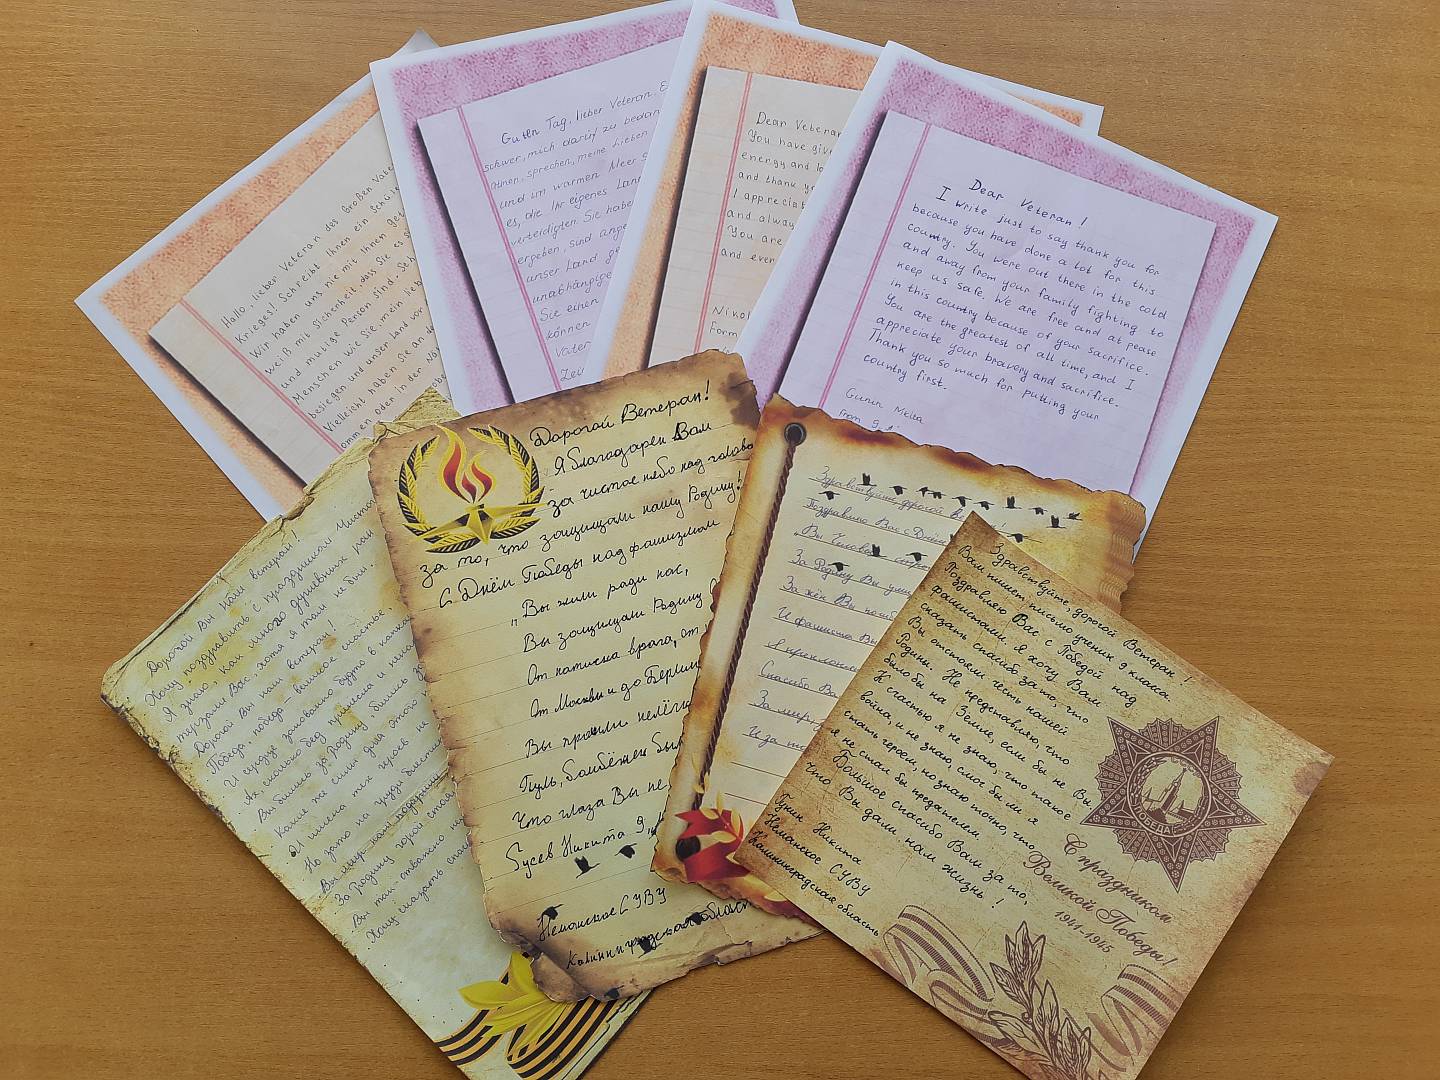 Hallo, lieber Veteran das Großen Vate
Krieges! Schreibt Ihnen ein Schüle
Wir haben uns nie mit Ihnen get
weiß mit Sicherheit, dass Sie es s
und mutige Person sind. Sch
Menschen wie Sie, mein lieb
besiegen und unser Land vor
Vielleicht haben Sie an de
ommen oder in der Näh
Guten Tag, lieber Veteran. E
schwer, mich dafür zu bedan
Ihnen, sprechen, meine Lieben
und im warmen Meer s
es, die Ihr eigenes Lan
verteidigten. Sie habe
ergeben, sind ange
unser Land g
unabhängige
Sie einen
können
Vater
Zeu
Dear Veteran
You have give
energy and lo
and thank yo
I appreciat
and alway
You are
and even
Nikol
Form
Dear Veteran!
I write just to say thank you for
because you have done a lot for this
country. You were out there in the cold
and away from your family fighting to
keep us safe. We are free and at peace
in this country because of your sacrifice.
You are the greatest of all time, and I
appreciate your bravery and sacrifice.
Thank you so much for putting your
country first.
Gunin Nikita
from 9
Дорогой Вы наш ветеран!
Хочу поздравить с праздником Чистог
Я знаю, как много душевных ран
терзали Вас, хотя я там не был.
Дорогой Вы наш ветеран!
Победа, победа - великое счастье.
И сердце заковано будто в капка
Ах, сколько бед принесла и нена
Вы бились за Родину, бились з
Какие же сини дни этого
И имена тех героев не
Но зато на груди блест
Вы мир нам подарили
За Родину горой стоя
Вы так отважно на
Хочу сказать спас
Дорогой Ветеран!
Я благодарен Вам
за чистое небо над голово
за то, что защищали нашу Родину!
С Днём Победы над фашизмом
„Вы жили ради нас,
Вы защищали Родину
От натиска врага, от
От Москвы и до Берлин
Вы прошли нелёгк
Пуль, бомбёжек был
Что глаза Вы не
Гусев Никита 9„
Неманское СУВУ
Калининградская област
Здравствуйте дорогой ве
Поздравляю Вас с Днём
„Вы
За Родину Вы
За жён Вы
И фашиста Вы
Я преклоня
Спасибо Ва
За мир,
И за то
Здравствуйте, дорогой Ветеран!
Вам пишет письмо ученик 9 класса.
Поздравляю Вас с Победой над
фашистами. Я хочу Вам
сказать спасибо за то, что
Вы отстояли честь нашей
Родины. Не представляю, что
было бы на Земле, если бы не Вы.
К счастью я не знаю, что такое
война, и не знаю, смог бы ли я
стать героем, но знаю точно, что
я не стал бы предателем.
Большое спасибо Вам за то,
что Вы дали нам жизнь!
Гунин Никита
Неманское СУВУ
Калининградская область
ПОБЕДА
С праздником
Великой Победы!
1941-1945